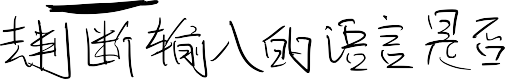 去判断输入的语言是否